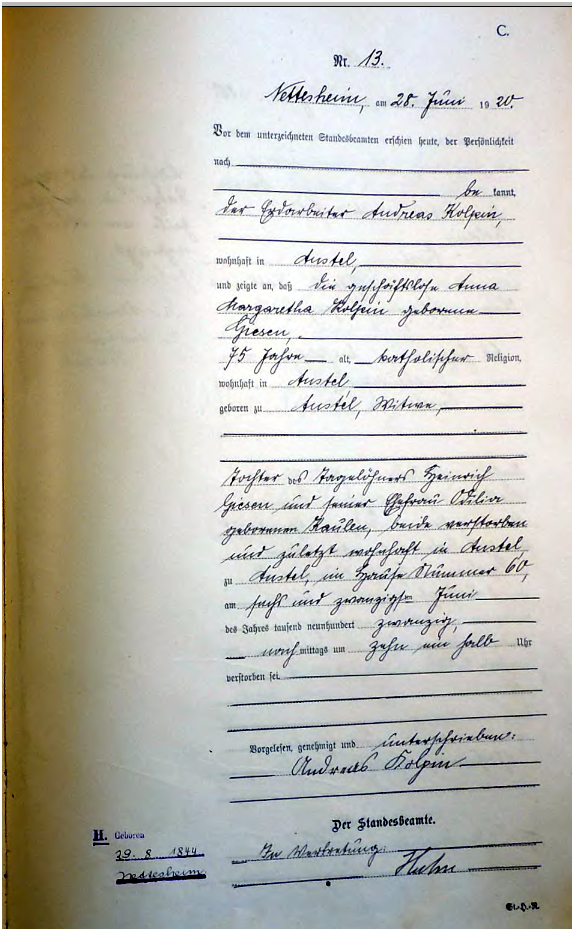 C.
Nr. 13.
Nettesheim, am 28. Juni 1920.
Vor dem unterzeichneten Standesbeamten erschien heute, der Persönlichkeit
nach
be kannt,
der Erdarbeiter Andreas Kolpin,
wohnhaft in Anstel,
und zeigte an, daß die geschäftslose Anna
Margaretha Kolpin geborene
Giesen,
75 Jahre alt, katholischer Religion,
wohnhaft in Anstel
geboren zu Anstel, Witwe,
Tochter des Tagelöhners Heinrich
Giesen und seiner Ehefrau Odilia
geborenen Kaulen, beide verstorben
und zuletzt wohnhaft in Anstel,
zu Anstel, im Hause Nummer 60,
am sechs und zwanzigsten Juni
des Jahres tausend neunhundert zwanzig,
nach mittags um zehn ein halb Uhr
verstorben sei.
Vorgelesen, genehmigt und unterschrieben:
Andreas Kolpin
Der Standesbeamte.
In Vertretung:
H. Geboren
29. 8. 1844
Nettesheim
St.-H.-R.